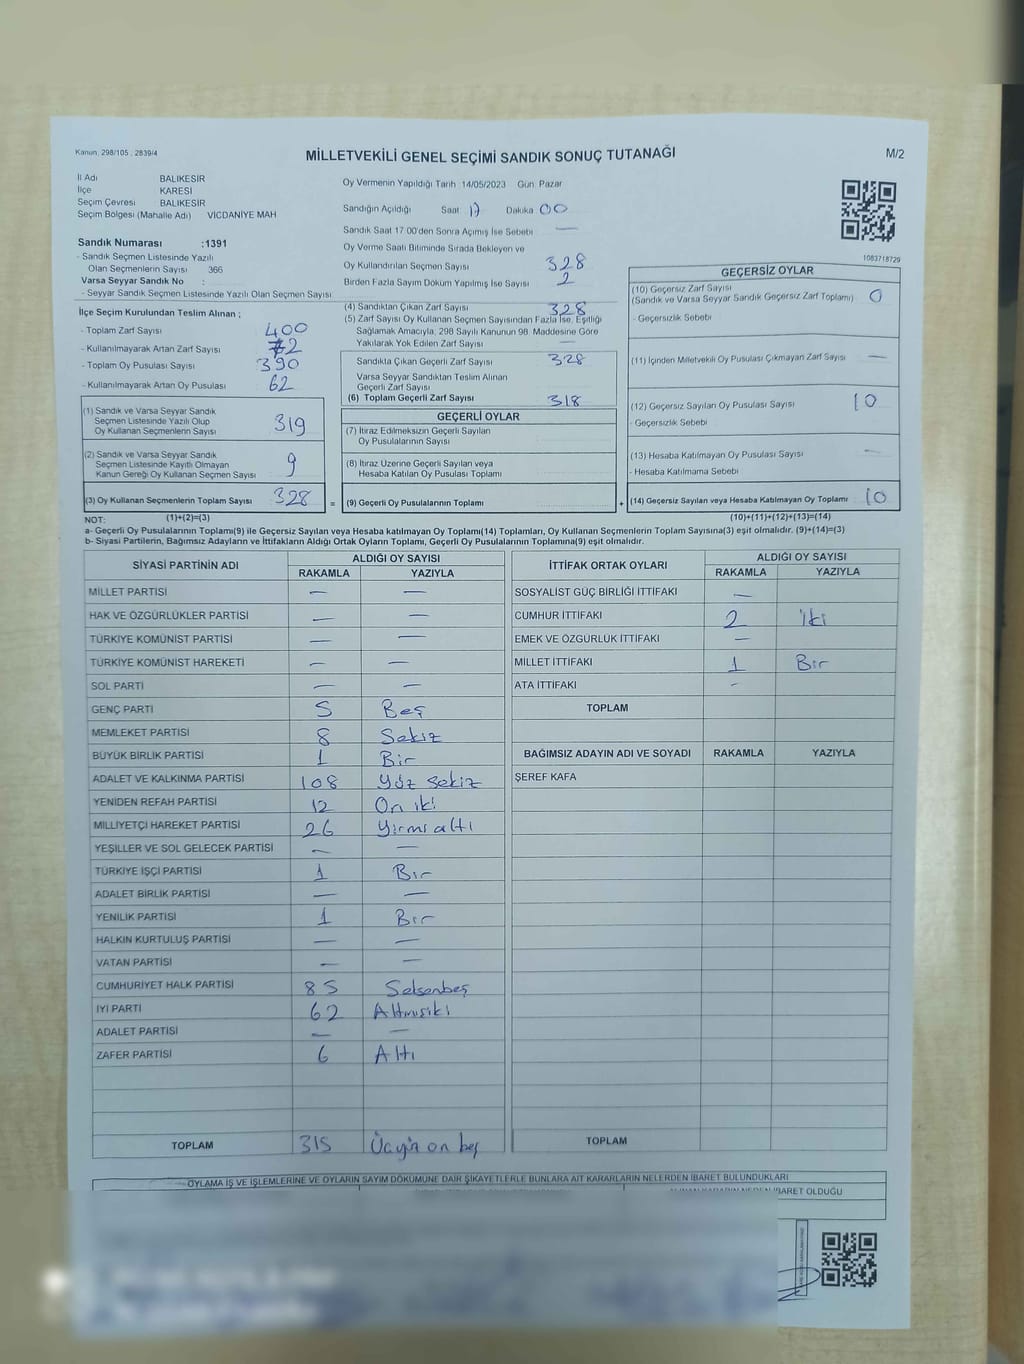 Kanun, 298/105 , 2839/4
MİLLETVEKİLİ GENEL SEÇİMİ SANDIK SONUÇ TUTANAĞI
M/2
İl Adı BALIKESİR
İlçe KARESİ
Seçim Çevresi BALIKESİR
Seçim Bölgesi (Mahalle Adı) VİCDANİYE MAH
Sandık Numarası :1391
- Sandık Seçmen Listesinde Yazılı
Olan Seçmenlerin Sayısı 366
Varsa Seyyar Sandık No :
- Seyyar Sandık Seçmen Listesinde Yazılı Olan Seçmen Sayısı
İlçe Seçim Kurulundan Teslim Alınan ;
- Toplam Zarf Sayısı 400
- Kullanılmayarak Artan Zarf Sayısı 72
- Toplam Oy Pusulası Sayısı 390
- Kullanılmayarak Artan Oy Pusulası 62
(1) Sandık ve Varsa Seyyar Sandık
Seçmen Listesinde Yazılı Olup
Oy Kullanan Seçmenlerin Sayısı 319
(2) Sandık ve Varsa Seyyar Sandık
Seçmen Listesinde Kayıtlı Olmayan
Kanun Gereği Oy Kullanan Seçmen Sayısı 9
(3) Oy Kullanan Seçmenlerin Toplam Sayısı 328 =
(1)+(2)=(3)
Oy Vermenin Yapıldığı Tarih 14/05/2023 Gün Pazar
Sandığın Açıldığı Saat 17 Dakika 00
Sandık Saat 17:00'den Sonra Açımış İse Sebebi —
Oy Verme Saati Bitiminde Sırada Bekleyen ve
Oy Kullandırılan Seçmen Sayısı 328
Birden Fazla Sayım Döküm Yapılmış İse Sayısı 2
(4) Sandıktan Çıkan Zarf Sayısı 328
(5) Zarf Sayısı Oy Kullanan Seçmen Sayısından Fazla İse, Eşitliği
Sağlamak Amacıyla, 298 Sayılı Kanunun 98. Maddesine Göre
Yakılarak Yok Edilen Zarf Sayısı —
Sandıkta Çıkan Geçerli Zarf Sayısı 328
Varsa Seyyar Sandıktan Teslim Alınan
Geçerli Zarf Sayısı
(6) Toplam Geçerli Zarf Sayısı 318
GEÇERLİ OYLAR
(7) İtiraz Edilmeksizin Geçerli Sayılan
Oy Pusulalarının Sayısı
(8) İtiraz Üzerine Geçerli Sayılan veya
Hesaba Katılan Oy Pusulası Toplamı
(9) Geçerli Oy Pusulalarının Toplamı +
1083718729
GEÇERSİZ OYLAR
(10) Geçersiz Zarf Sayısı
(Sandık ve Varsa Seyyar Sandık Geçersiz Zarf Toplamı) 0
- Geçersizlik Sebebi
(11) İçinden Milletvekili Oy Pusulası Çıkmayan Zarf Sayısı —
(12) Geçersiz Sayılan Oy Pusulası Sayısı 10
- Geçersizlik Sebebi
(13) Hesaba Katılmayan Oy Pusulası Sayısı —
- Hesaba Katılmama Sebebi
(14) Geçersiz Sayılan veya Hesaba Katılmayan Oy Toplamı 10
(10)+(11)+(12)+(13)=(14)
NOT:
a- Geçerli Oy Pusulalarının Toplamı(9) ile Geçersiz Sayılan veya Hesaba katılmayan Oy Toplamı(14) Toplamları, Oy Kullanan Seçmenlerin Toplam Sayısına(3) eşit olmalıdır. (9)+(14)=(3)
b- Siyasi Partilerin, Bağımsız Adayların ve İttifakların Aldığı Ortak Oyların Toplamı, Geçerli Oy Pusulalarının Toplamına(9) eşit olmalıdır.
SİYASİ PARTİNİN ADI ALDIĞI OY SAYISI
RAKAMLA YAZIYLA
MİLLET PARTİSİ — —
HAK VE ÖZGÜRLÜKLER PARTİSİ — —
TÜRKİYE KOMÜNİST PARTİSİ — —
TÜRKİYE KOMÜNİST HAREKETİ — —
SOL PARTİ — —
GENÇ PARTİ 5 Beş
MEMLEKET PARTİSİ 8 Sekiz
BÜYÜK BİRLİK PARTİSİ 1 Bir
ADALET VE KALKINMA PARTİSİ 108 Yüz sekiz
YENİDEN REFAH PARTİSİ 12 On iki
MİLLİYETÇİ HAREKET PARTİSİ 26 Yirmi altı
YEŞİLLER VE SOL GELECEK PARTİSİ — —
TÜRKİYE İŞÇİ PARTİSİ 1 Bir
ADALET BİRLİK PARTİSİ — —
YENİLİK PARTİSİ 1 Bir
HALKIN KURTULUŞ PARTİSİ — —
VATAN PARTİSİ — —
CUMHURİYET HALK PARTİSİ 85 Seksenbeş
İYİ PARTİ 62 Altmışiki
ADALET PARTİSİ — —
ZAFER PARTİSİ 6 Altı
TOPLAM 315 Üçyüz on beş
İTTİFAK ORTAK OYLARI ALDIĞI OY SAYISI
RAKAMLA YAZIYLA
SOSYALİST GÜÇ BİRLİĞİ İTTİFAKI —
CUMHUR İTTİFAKI 2 İki
EMEK VE ÖZGÜRLÜK İTTİFAKI —
MİLLET İTTİFAKI 1 Bir
ATA İTTİFAKI -
TOPLAM
BAĞIMSIZ ADAYIN ADI VE SOYADI RAKAMLA YAZIYLA
ŞEREF KAFA
TOPLAM
OYLAMA İŞ VE İŞLEMLERİNE VE OYLARIN SAYIM DÖKÜMÜNE DAİR ŞİKAYETLERLE BUNLARA AİT KARARLARIN NELERDEN İBARET BULUNDUKLARI
İBARET OLDUĞU